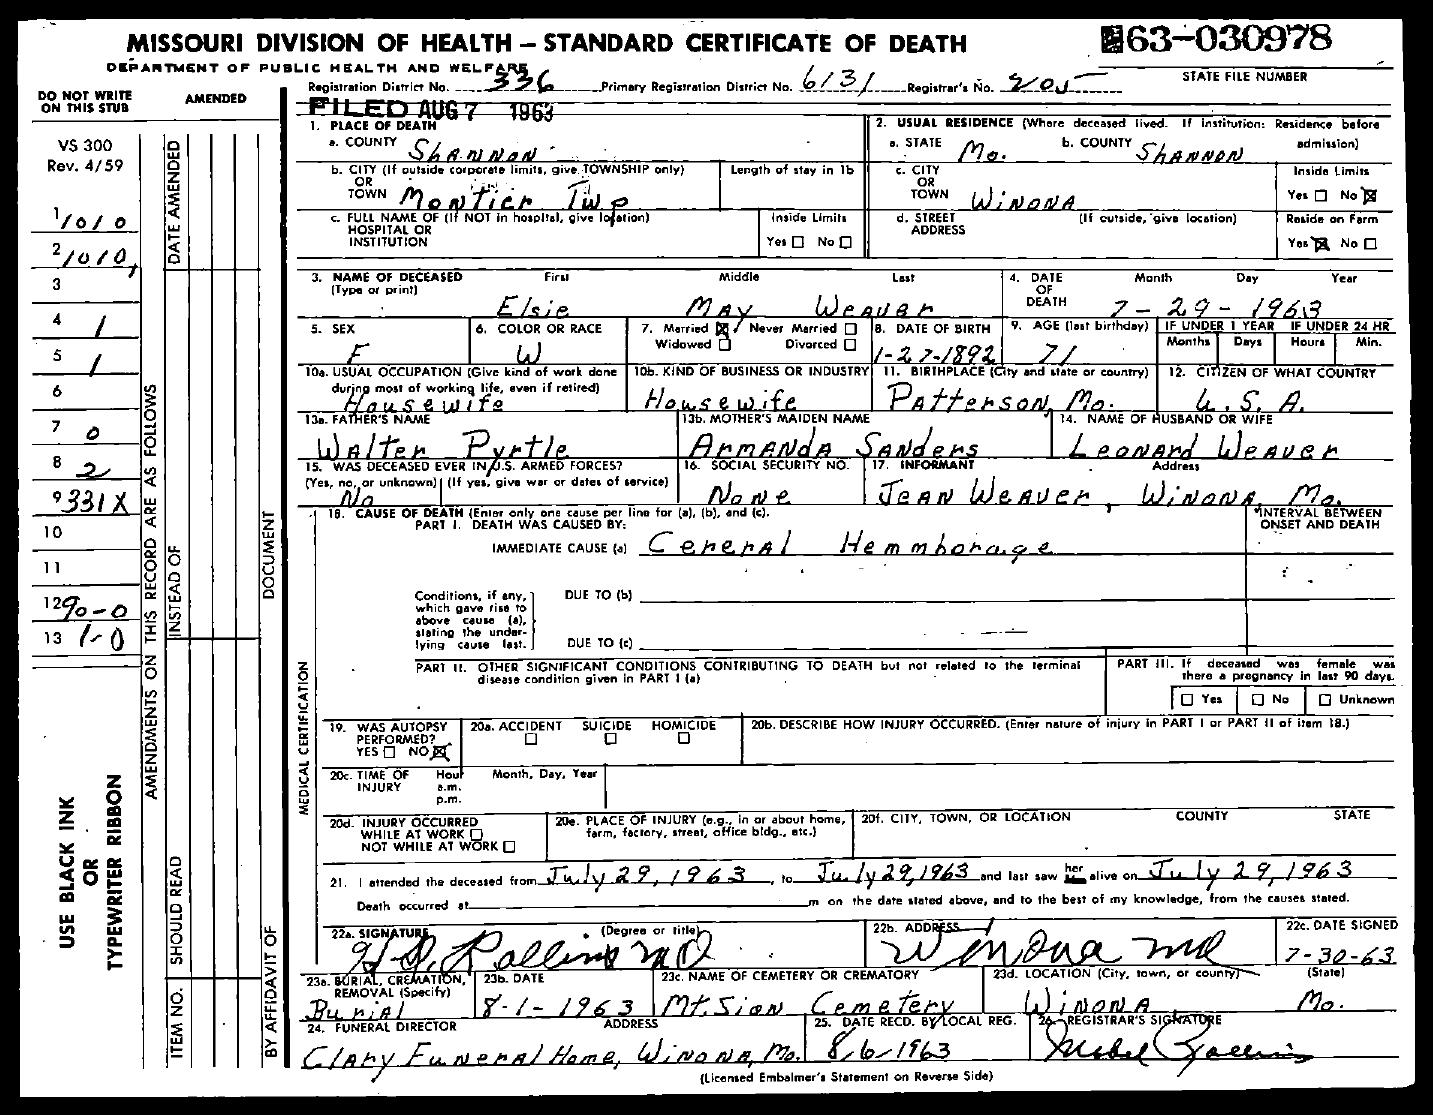 MISSOURI DIVISION OF HEALTH – STANDARD CERTIFICATE OF DEATH
63-030978
DEPARTMENT OF PUBLIC HEALTH AND WELFARE
STATE FILE NUMBER
Registration District No. 336 Primary Registration District No. 6131 Registrar's No. 205
FILED AUG 7 1963
DO NOT WRITE ON THIS STUB
AMENDED
VS 300
Rev. 4/59
1 1010
2 1010
3
4 1
5 1
6
7 0
8 2
9 331X
10
11
12 90-0
13 1-0
USE BLACK INK
OR
TYPEWRITER RIBBON
AMENDMENTS ON THIS RECORD ARE AS FOLLOWS
DATE AMENDED
INSTEAD OF
SHOULD READ
ITEM NO.
DOCUMENT
BY AFFIDAVIT OF
MEDICAL CERTIFICATION
1. PLACE OF DEATH
a. COUNTY Shannon
b. CITY (If outside corporate limits, give TOWNSHIP only) OR TOWN Montier Twp
Length of stay in 1b
c. FULL NAME OF (If NOT in hospital, give location) HOSPITAL OR INSTITUTION
Inside Limits
Yes ☐ No ☐
2. USUAL RESIDENCE (Where deceased lived. If institution: Residence before admission)
a. STATE Mo. b. COUNTY Shannon
c. CITY OR TOWN Winona
Inside Limits
Yes ☐ No ☒
d. STREET ADDRESS (If outside, give location)
Reside on Farm
Yes ☒ No ☐
3. NAME OF DECEASED (Type or print) First Middle Last
Elsie May Weaver
4. DATE OF DEATH Month Day Year
7-29-1963
5. SEX F
6. COLOR OR RACE W
7. Married ☒ Never Married ☐ Widowed ☐ Divorced ☐
8. DATE OF BIRTH 1-27-1892
9. AGE (last birthday) 71
IF UNDER 1 YEAR Months Days
IF UNDER 24 HR Hours Min.
10a. USUAL OCCUPATION (Give kind of work done during most of working life, even if retired) Housewife
10b. KIND OF BUSINESS OR INDUSTRY Housewife
11. BIRTHPLACE (City and state or country) Patterson, Mo.
12. CITIZEN OF WHAT COUNTRY U.S.A.
13a. FATHER'S NAME Walter Pyrtle
13b. MOTHER'S MAIDEN NAME Armanda Sanders
14. NAME OF HUSBAND OR WIFE Leonard Weaver
15. WAS DECEASED EVER IN U.S. ARMED FORCES? (Yes, no, or unknown) (If yes, give war or dates of service) No
16. SOCIAL SECURITY NO. None
17. INFORMANT Address Jean Weaver, Winona, Mo.
18. CAUSE OF DEATH (Enter only one cause per line for (a), (b), and (c).
PART I. DEATH WAS CAUSED BY:
INTERVAL BETWEEN ONSET AND DEATH
IMMEDIATE CAUSE (a) Cereral Hemmhorage
Conditions, if any, which gave rise to above cause (a), stating the underlying cause last.
DUE TO (b)
DUE TO (c)
PART II. OTHER SIGNIFICANT CONDITIONS CONTRIBUTING TO DEATH but not related to the terminal disease condition given in PART I (a)
PART III. If deceased was female was there a pregnancy in last 90 days.
☐ Yes ☐ No ☐ Unknown
19. WAS AUTOPSY PERFORMED? YES ☐ NO ☒
20a. ACCIDENT ☐ SUICIDE ☐ HOMICIDE ☐
20b. DESCRIBE HOW INJURY OCCURRED. (Enter nature of injury in PART I or PART II of item 18.)
20c. TIME OF INJURY Hour a.m. p.m. Month, Day, Year
20d. INJURY OCCURRED WHILE AT WORK ☐ NOT WHILE AT WORK ☐
20e. PLACE OF INJURY (e.g., in or about home, farm, factory, street, office bldg., etc.)
20f. CITY, TOWN, OR LOCATION COUNTY STATE
21. I attended the deceased from July 29, 1963, to July 29, 1963 and last saw her alive on July 29, 1963
Death occurred at m on the date stated above, and to the best of my knowledge, from the causes stated.
22a. SIGNATURE (Degree or title) Rollins MD
22b. ADDRESS Winona Mo
22c. DATE SIGNED 7-30-63
23a. BURIAL, CREMATION, REMOVAL (Specify) Burial
23b. DATE 8-1-1963
23c. NAME OF CEMETERY OR CREMATORY Mt. Sion Cemetery
23d. LOCATION (City, town, or county) (State) Winona Mo.
24. FUNERAL DIRECTOR ADDRESS
Clary Funeral Home, Winona, Mo.
25. DATE RECD. BY LOCAL REG. 8/6/1963
26. REGISTRAR'S SIGNATURE Mabel Rollins
(Licensed Embalmer's Statement on Reverse Side)